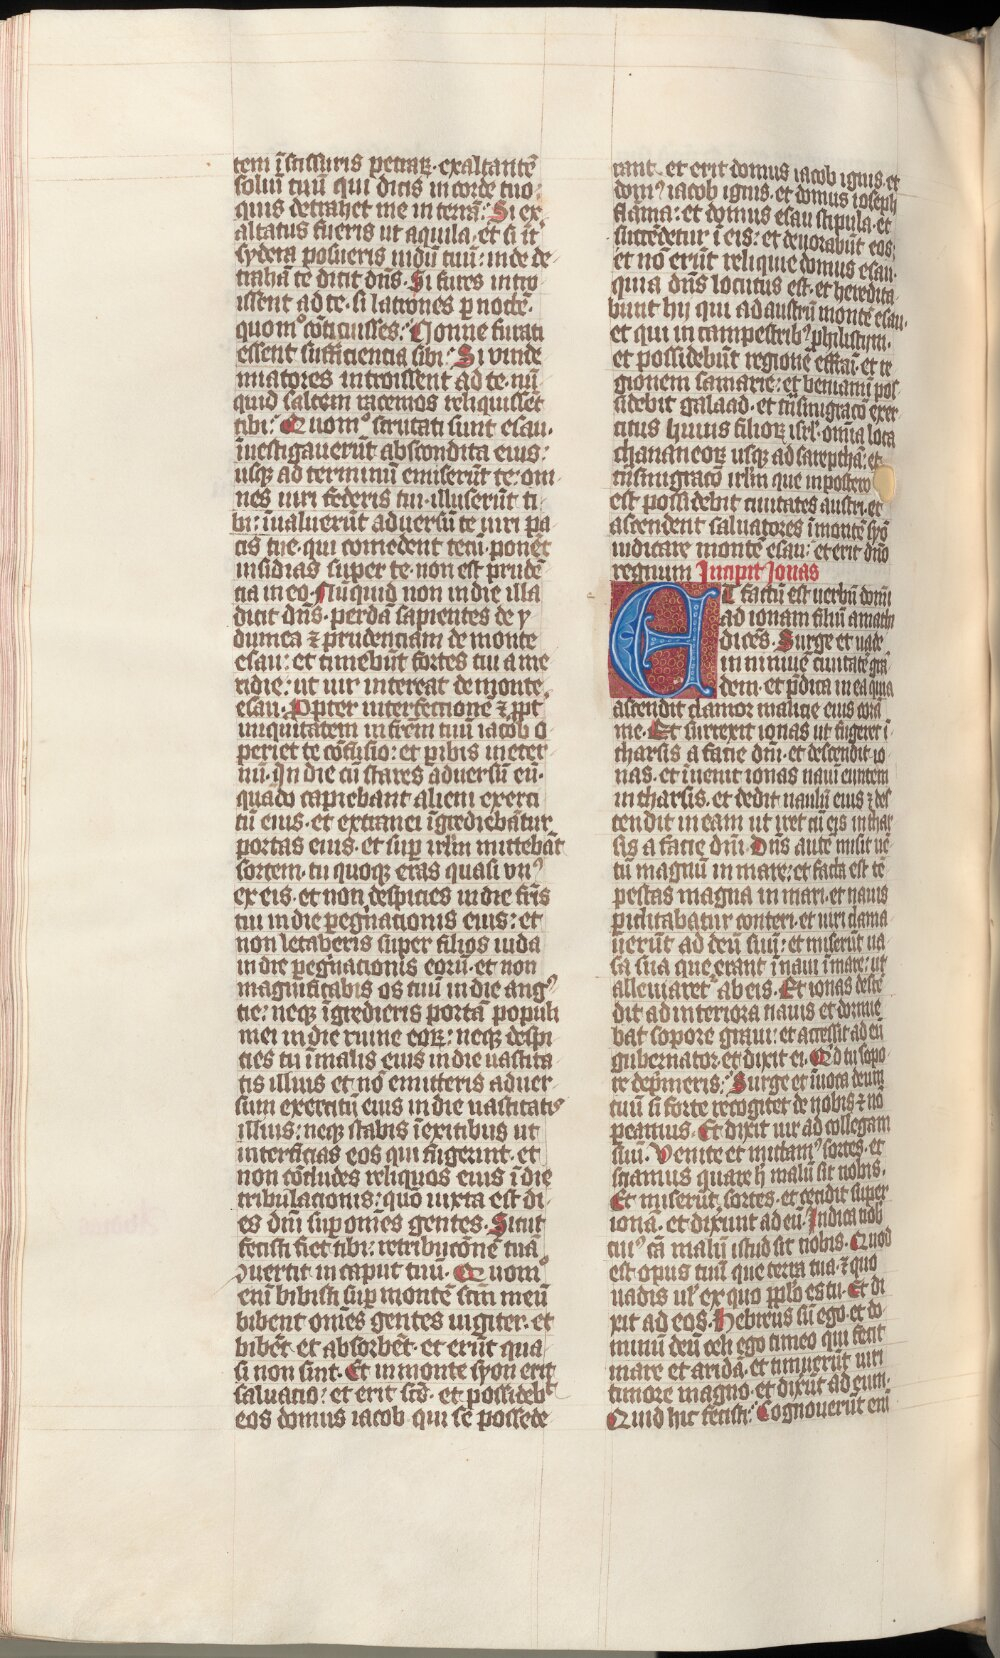 tem ī scissuris petraꝝ · exaltantē
soliū tuū qui dicis in corde tuo:
quis detrahet me in terrā: Si ex
altatus fueris ut aquila · et si īt̄
sydera posueris nidū tuū: inde de
trahā te dicit dn̄s · Si fures intro
issent ad te · si latrones p̱ noctē ·
quomᵒ cōticuisses: Nonne furati
essent sufficiencia sibi: Si vinde
miatores introissent ad te · nū
quid saltem racemos reliquissēt
tibi: Quomᵒ scrutati sunt esau ·
īuestigauerūt abscondita eius:
usqꝫ ad terminū emiserūt te: om
nes uiri federis tui · illuserūt ti
bi: īualuerūt aduersū te uiri pa
cis tue · qui comedent tecū · ponēt
insidias super te · non est prudē
cia in eo · Nūquid non in die illa
dicit dn̄s · perdā sapientes de y
dumea ⁊ prudenciam de monte
esau: et timebūt fortes tui a me
ridie: ut uir intereat de monte
esau · Propter interfectionē ⁊ p̱pt̄
iniquitatem in frēm tuū iacob o
periet te cōfusio: et p̱ibis in eter
nū · In die cū stares aduersū eū ·
quādo capiebant alieni exerci
tū eius · et extranei īgrediebātur
portas eius · et sup̱ irlm̄ mittebāt
sortem · tu quoqꝫ eras quasi vnꝰ
ex eis · et non despicies in die fr̄is
tui in die peg̱nationis eius: et
non letaberis super filios iuda
in die peg̱nacionis eorū · et non
magnificabis os tuū in die angꝰ
tie: neqꝫ īgredieris portā populi
mei in die ruine eoꝝ: neqꝫ despi
cies tu ī malis eius in die uastita
tis illius et nō emitteris aduer
sum exercitū eius in die uastitatis
illius: neqꝫ stabis ī exitibus ut
interficias eos qui fugerint · et
non cōcludes reliquos eius ī die
tribulacionis: quō iuxta est di
es dn̄i sup̱ om̄es gentes · Sicut
fecisti fiet tibi: retribucōnē tuā
ꝯuertit in caput tuū · Quomᵒ
enī bibisti sup̱ montē scm̄ meū
bibent om̄es gentes iugiter · et
bibēt et absorbēt · et erūt qua
si non sint · Et in monte syon erit
saluatio: et erit scs̄ · et possidebᵗ
eos domus iacob qui se possede
rant · et erit domus iacob ignis · et
domꝰ iacob ignis · et domus ioseph
flāma: et domus esau stipula · et
succēdetur ī eis: et deuorabūt eos:
et nō erūt reliquie domus esau ·
quia dn̄s locutus est · et heredita
bunt hij qui ad austrū montē esau ·
et qui in campestribꝰ philistijm ·
et possidebūt regionē effrai · et re
gionem samarie: et beniamī pos
sidebit galaad · et trāsmigracō exer
citus huius filioꝝ isrl̄ · om̄ia loca
chananeoꝝ usqꝫ ad sarepthā: et
trāsmigracō irlm̄ que in posforo
est possidebit ciuitates austri · et
ascendent saluatores ī montē syō
iudicare montē esau: et erit dn̄o
regnum Incipit Jonas
ET factū est uerbū domī
ad ionam filiū amathi
dicēs · Surge et uade
in niniuē ciuitatē grā
dem · et p̄dica in ea quia
ascendit clamor malicie eius corā
me · Et surrexit ionas ut fugeret ī
tharsis a facie dn̄i · et descendit io
nas · et inuenit ionas nauī euntem
in tharsis · et dedit naulū eius ⁊ des
cendit in eam ut iret cū eis in thar
sis a facie dn̄i · Dn̄s autē misit uē
tū magnū in mare: et facta est tē
pestas magna in mari · et nauis
piclitabatur conteri · et uiri clama
uerūt ad deū suū: et miserūt ua
sa sua que erant ī naui ī mare: ut
alleuiaret ab eis · Et ionas descē
dit ad interiora nauis et dormie
bat sopore graui: et accessit ad eū
gubernator · et dixit ei · Qͥd tu sopo
re dep̄meris: Surge et īuoca deum
tuū si forte recogitet de nobis ⁊ nō
peamus · Et dixit uir ad collegam
suū · Venite et mittamꝰ sortes · et
sciamus quare h̄ malū sit nobis ·
Et miserūt sortes · et cecidit super
ionā · et dixūnt ad eū · Indica nob̄
cuiꝰ cā malū istud sit nobis · Quod
est opus tuū que terra tua · ⁊ quo
uadis ul̓ ex quo pplo es tu · Et di
xit ad eos · Hebreus sū ego · et do
minū deū celi ego timeo qui fecit
mare et aridā · et timuerūt uiri
timore magno · et dixūt ad eum ·
Quid hic fecisti: Cognouerūt enī